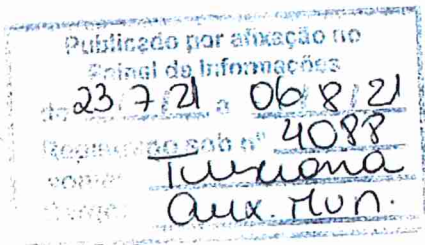 Publicado por afixação no
Painel de Informações
de 23/7/21 a 06/8/21
Registrado sob nº 4088
nome:
Cargo: Aux. Mun.